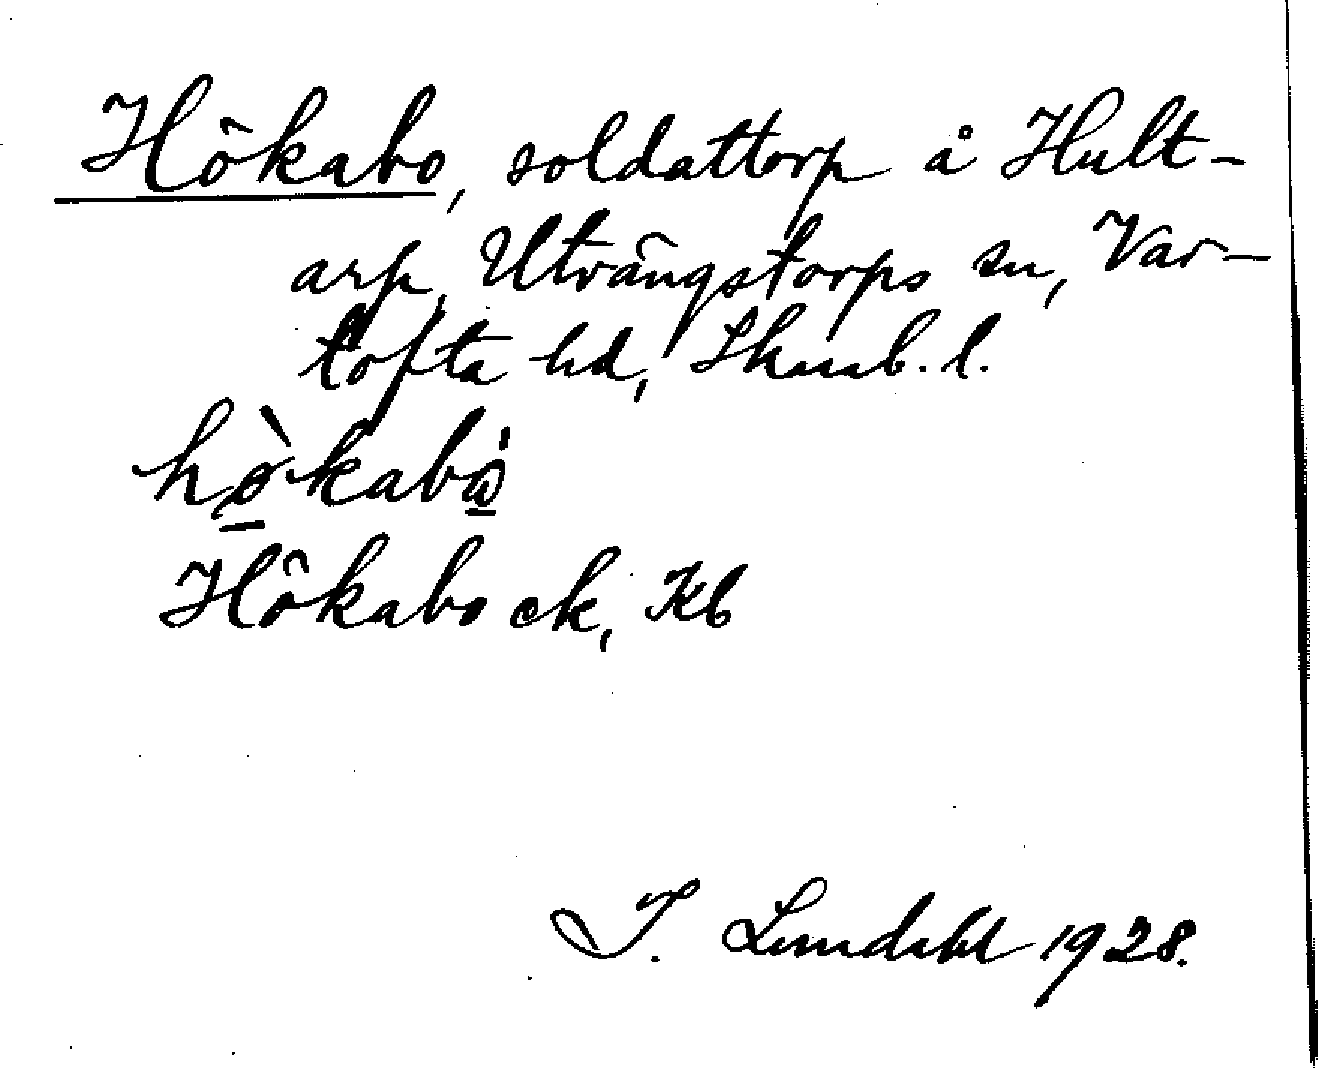 Hökabo, soldattorp å Hult-
arp, Utvängstorps sn, Var-
tofta hd, Skarab. l.
hø̠̀kabὼ̠
Hökabo ek, Kb
I. Lundahl 1928.